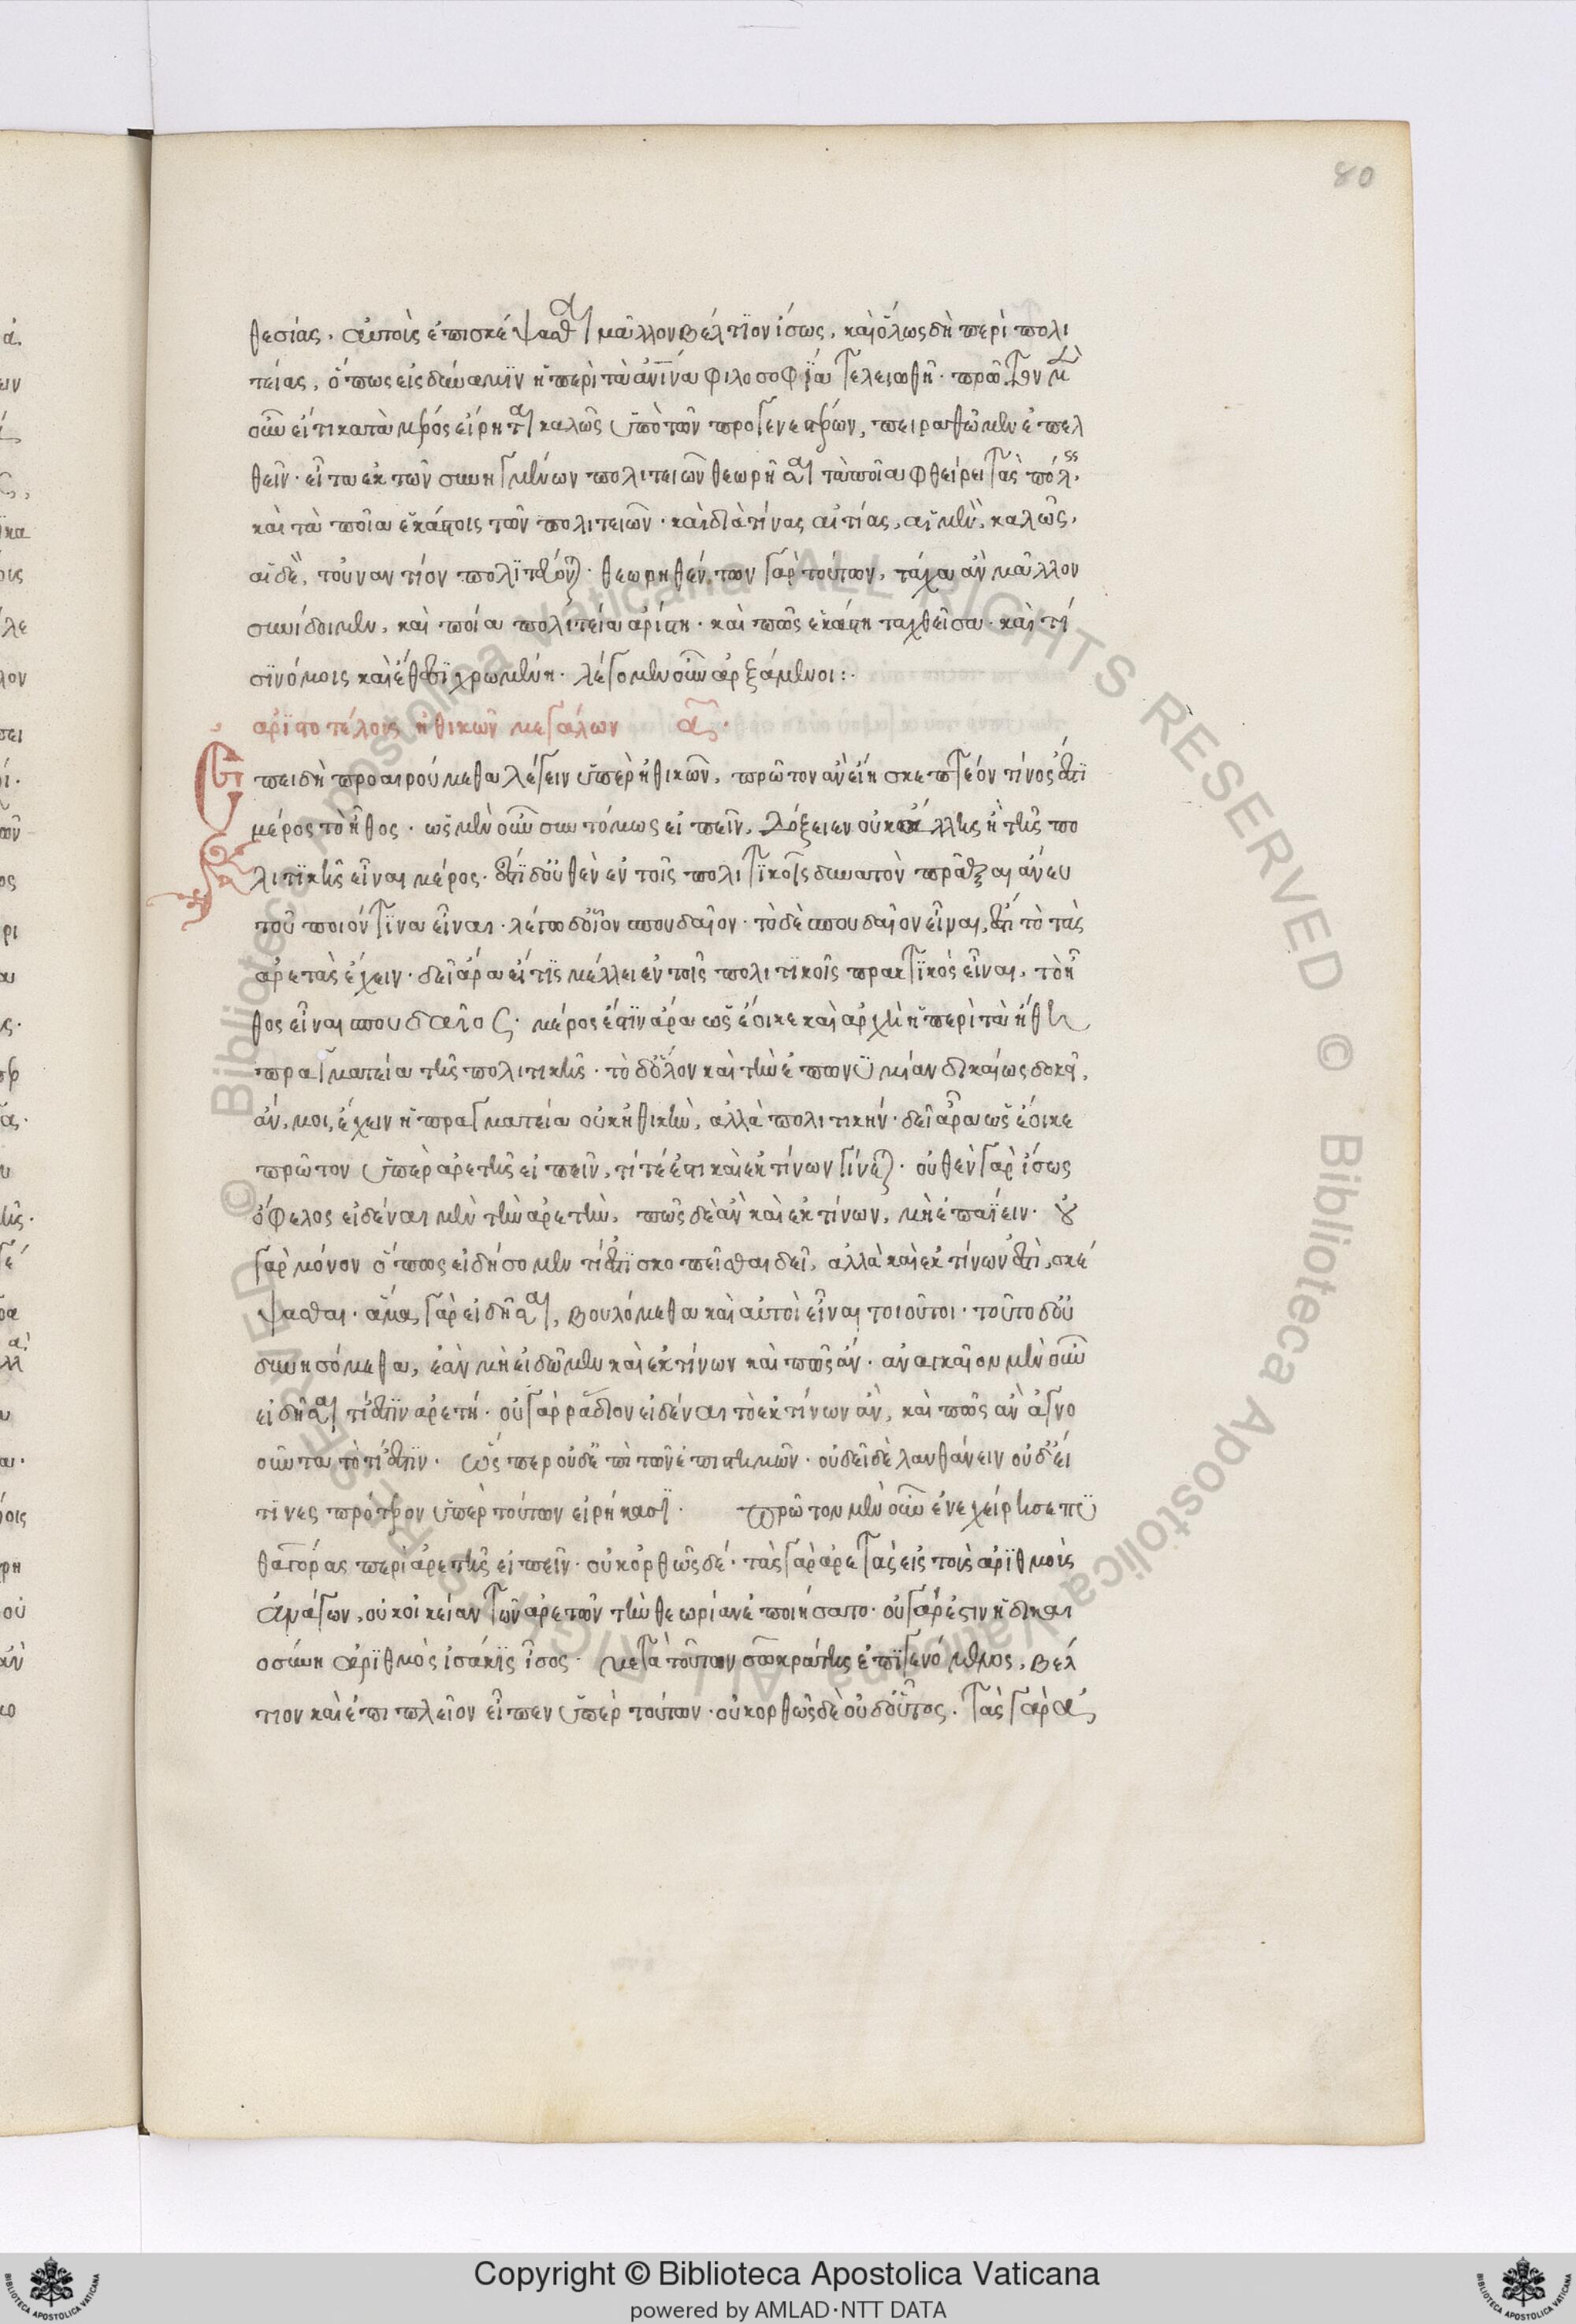 80
θεσίας, αὐτοὺς ἐπισκέψασθαι μᾶλλον βέλτιον ἴσως, καὶ ὅλως δὴ περὶ πολι
τείας, ὅπως εἰς δύναμιν ἡ περὶ τὰ ἀνίνα φιλοσοφία τελειωθῆ. πρῶτον μὲν
οὖν εἴ τι κατὰ μέρος εἴρηται καλῶς ὑπὸ τῶν προγενεστέρων, πειραθῶμεν ἐπελ
θεῖν. εἶτα ἐκ τῶν συνηγμένων πολιτειῶν θεωρῆσαι τὰ ποῖα φθείρει τὰς πόλεις.
καὶ τὰ ποῖα ἑκάστοις τῶν πολιτειῶν. καὶ διὰ τίνας αἰτίας, αἱ μὲν, καλῶς,
αἱ δὲ, τοὐναντίον πολιτεύονται. θεωρηθέντων γὰρ τούτων, τάχα ἂν μᾶλλον
συνίδοιμεν, καὶ ποία πολιτεία ἀρίστη. καὶ πῶς ἑκάστη ταχθεῖσα. καὶ τί
σι νόμοις καὶ ἔθεσι χρωμένη. λέγομεν οὖν ἀρξάμενοι:.
ἀριστοτέλους ἠθικῶν μεγάλων α.
Ἐπειδὴ προαιρούμεθα λέγειν ὑπὲρ ἠθικῶν, πρῶτον ἂν εἴη σκεπτέον τίνος ἐστὶ
μέρος τὸ ἦθος. ὡς μὲν οὖν συντόμως εἰπεῖν, δόξειεν οὐκ ἄλλης ἢ τῆς πο
λιτικῆς εἶναι μέρος. ἔστι δ' οὐθὲν ἐν τοῖς πολιτικοῖς δυνατὸν πρᾶξαι ἄνευ
τοῦ ποιόν τινα εἶναι. λέγω δ' οἷον σπουδαῖον. τὸ δὲ σπουδαῖον εἶναι, ἐστὶ τὸ τὰς
ἀρετὰς ἔχειν. δεῖ ἄρα εἴ τις μέλλει ἐν τοῖς πολιτικοῖς πρακτικὸς εἶναι, τὸ ἦ
θος εἶναι σπουδαῖος. μέρος ἐστὶν ἄρα ὡς ἔοικε καὶ ἀρχὴ ἡ περὶ τὰ ἤθη
πραγματεία τῆς πολιτικῆς. τὸ δ' ὅλον καὶ τὴν ἐπωνυμίαν δικαίως δοκεῖ,
ἄν, μοι, ἔχειν ἡ πραγματεία οὐκ ἠθικὴν, ἀλλὰ πολιτικήν. δεῖ ἄρα ὡς ἔοικε
πρῶτον ὑπὲρ ἀρετῆς εἰπεῖν, τί τέ ἐστι καὶ ἐκ τίνων γίνεται. οὐθὲν γὰρ ἴσως
ὄφελος εἰδέναι μὲν τὴν ἀρετὴν, πῶς δὲ ἂν καὶ ἐκ τίνων, μὴ ἐπαΐειν. οὐ
γὰρ μόνον ὅπως εἰδήσομεν τί ἐστι σκοπεῖσθαι δεῖ, ἀλλὰ καὶ ἐκ τίνων ἐστὶ, σκέ
ψασθαι. ἅμα, γὰρ εἰδῆσαι, βουλόμεθα καὶ αὐτοὶ εἶναι τοιοῦτοι. τοῦτο δ' οὐ
δυνησόμεθα, ἐὰν μὴ εἰδῶμεν καὶ ἐκ τίνων καὶ πῶς ἄν. ἀναγκαῖον μὲν οὖν
εἰδῆσαι τί ἐστιν ἀρετή. οὐ γὰρ ῥᾴδιον εἰδέναι τὸ ἐκ τίνων ἂν, καὶ πῶς ἂν ἀγνο
οῦντα τὸ τί ἐστιν. ὥσπερ οὐδ' ἐπὶ τῶν ἐπιστημῶν. οὐ δεῖ δὲ λανθάνειν οὐδ' εἴ
τινες πρότερον ὑπὲρ τούτων εἰρήκασι. πρῶτον μὲν οὖν ἐνεχείρησε πυ
θαγόρας περὶ ἀρετῆς εἰπεῖν. οὐκ ὀρθῶς δέ. τὰς γὰρ ἀρετὰς εἰς τοὺς ἀριθμοὺς
ἀνάγων, οὐκ οἰκείαν τῶν ἀρετῶν τὴν θεωρίαν ἐποιήσατο. οὐ γάρ ἐστιν ἡ δικαι
οσύνη ἀριθμὸς ἰσάκις ἴσος. μετὰ τοῦτον σωκράτης ἐπιγενόμενος, βέλ
τιον καὶ ἐπὶ πλεῖον εἶπεν ὑπὲρ τούτων. οὐκ ὀρθῶς δὲ οὐδ' οὗτος. τὰς γὰρ ἀ
Copyright © Biblioteca Apostolica Vaticana
powered by AMLAD·NTT DATA